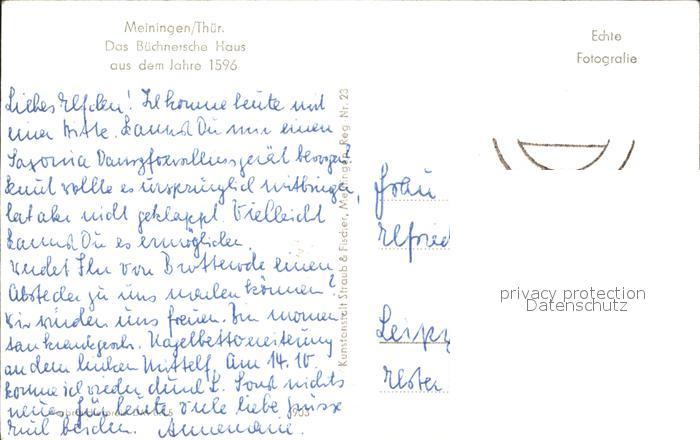 Meiningen/Thür.
Das Büchnersche Haus
aus dem Jahre 1596
Echte
Fotografie
Liebes Elfchen! Ich komme heute mit
einer Bitte. Kannst Du mir einen
Saxonia besorgen?
Knut wollte es ursprünglich mitbringen,
hat aber nicht geklappt. Vielleicht
kannst Du es ermöglichen.
Werdet Ihr von Brotterode einen
Abstecher zu uns machen können?
Wir würden uns freuen. Bin momen-
tan krankgeschr. Nagelbettvereiterung
an dem linken Mittelf. Am 14.10.
komme ich wieder durch L. Sonst nichts
neues. Für heute viele liebe Grüsse
Euch beiden. Annemarie.
Kunstanstalt Straub & Fischer, Meiningen Reg. Nr. 23
Frau
Elfried
Leipz
Elster
privacy protection
Datenschutz